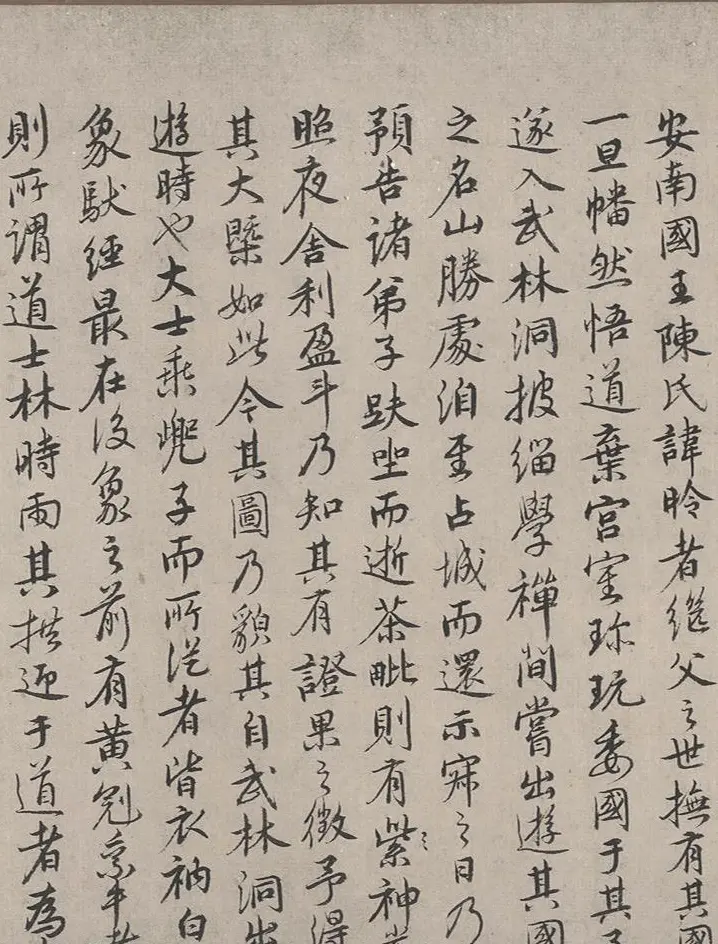 安南國王陳氏諱昑者繼父之世撫有其國
一旦幡然悟道棄宮室珎玩委國于其子
遂入武林洞披緇學禪間嘗出遊其國
之名山勝處洎至占城而還示寂之日乃
預告諸弟子趺坐而逝茶毗則有紫神光
照夜舍利盈斗乃知其有證果之徵予得
其大槩如此今其圖乃貌其自武林洞出
遊時也大士乗兠子而所從者皆衣衲白
象馱經最在後象之前有黄冠乗牛者
則所謂道士林時雨其拱迎于道者為